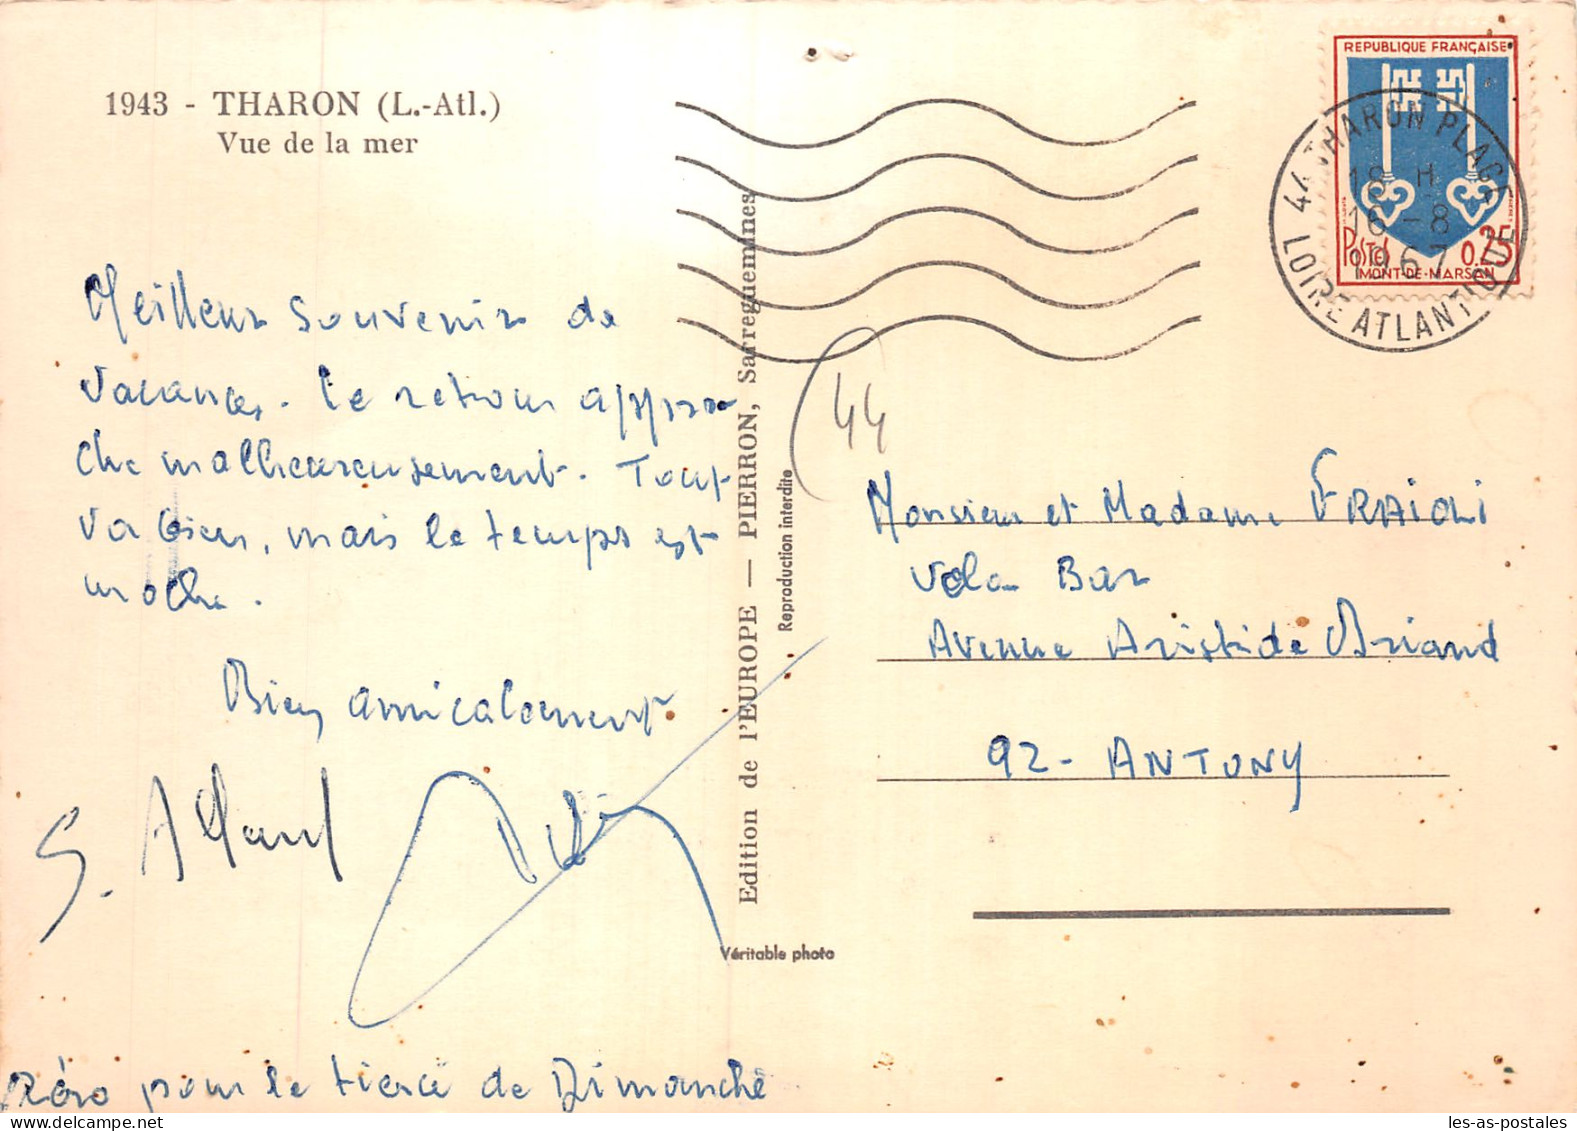 1943 - THARON (L.-Atl.)
Vue de la mer
REPUBLIQUE FRANÇAISE
POSTES 0.25
MONT-DE-MARSAN
44 THARON PLAGE
18 H
16-8
1967
LOIRE ATLANTIQUE
Meilleur souvenir de
vacances. Le retour appro-
che malheureusement. Tout
va bien, mais le temps est
moche.
Bien amicalement
S. Allard
Zéro pour le tiercé de Dimanche
Edition de l'EUROPE — PIERRON, Sarreguemines
Reproduction interdite
Véritable photo
44
Monsieur et Madame FRAIOLI
Vela Bar
Avenue Aristide Briand
92- ANTONY
les-as-postales